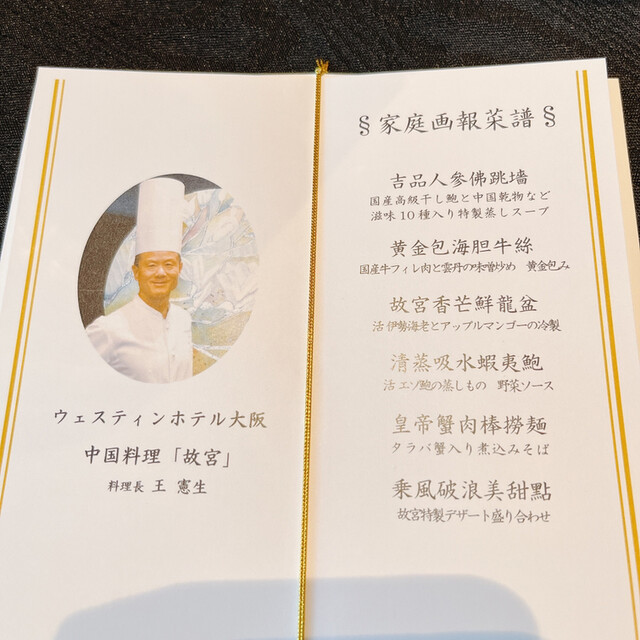 ウェスティンホテル大阪
中国料理「故宮」
料理長 王 憲生
§家庭画報菜譜§
吉品人參佛跳墻
国産高級干し鮑と中国乾物など
滋味10種入り特製蒸しスープ
黄金包海胆牛絲
国産牛フィレ肉と雲丹の味噌炒め 黄金包み
故宮香芒鮮龍盆
活伊勢海老とアップルマンゴーの冷製
清蒸吸水蝦夷鮑
活エゾ鮑の蒸しもの 野菜ソース
皇帝蟹肉棒撈麺
タラバ蟹入り煮込みそば
乘風破浪美甜點
故宮特製デザート盛り合わせ